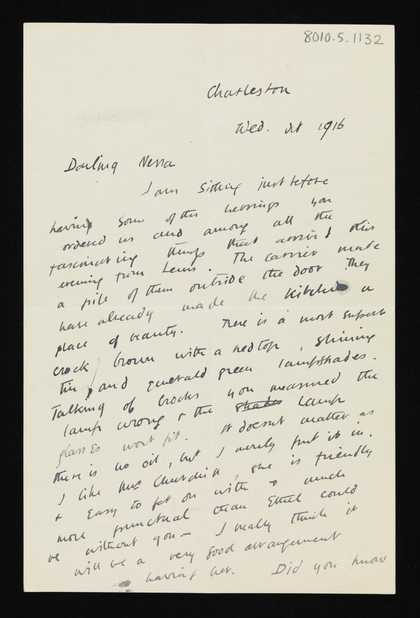 8010.5.1132
Charleston
Wed. Oct 1916
Darling Nessa
I am sitting just before
having some of the herrings you
ordered us and among all the
fascinating things that arrived this
evening from Lewes. The carrier made
a pile of them outside the door They
have already made the kitchen a
place of beauty. There is a most superb
crock brown with a red top, shining
tin, and emerald green lampshades.
Talking of crocks you measured the
lamp wrong & the shades lamp
glasses wont fit. It doesnt matter as
there is no oil, but I merely put it in.
I like Mrs Churchill, she is friendly
& easy to get on with & much
more punctual than Ethel could
be without you – I really think it
will be a very good arrangement
having her. Did you know